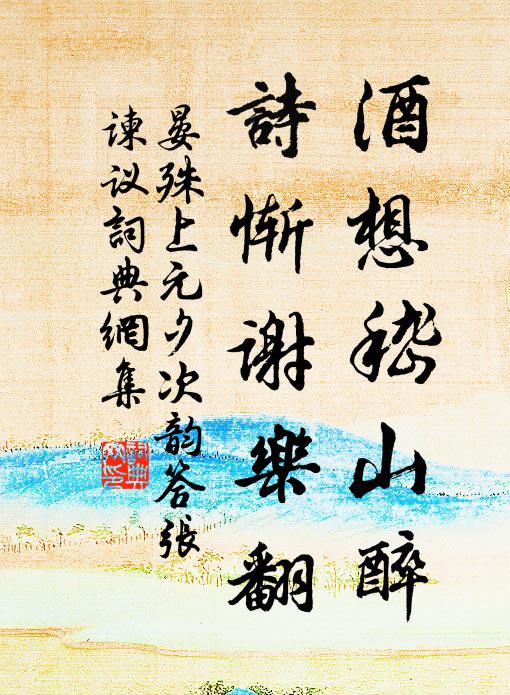 酒想嵇山醉
詩慚谢樂翻
晏殊上元夕次韵答張
諫议詞典網集